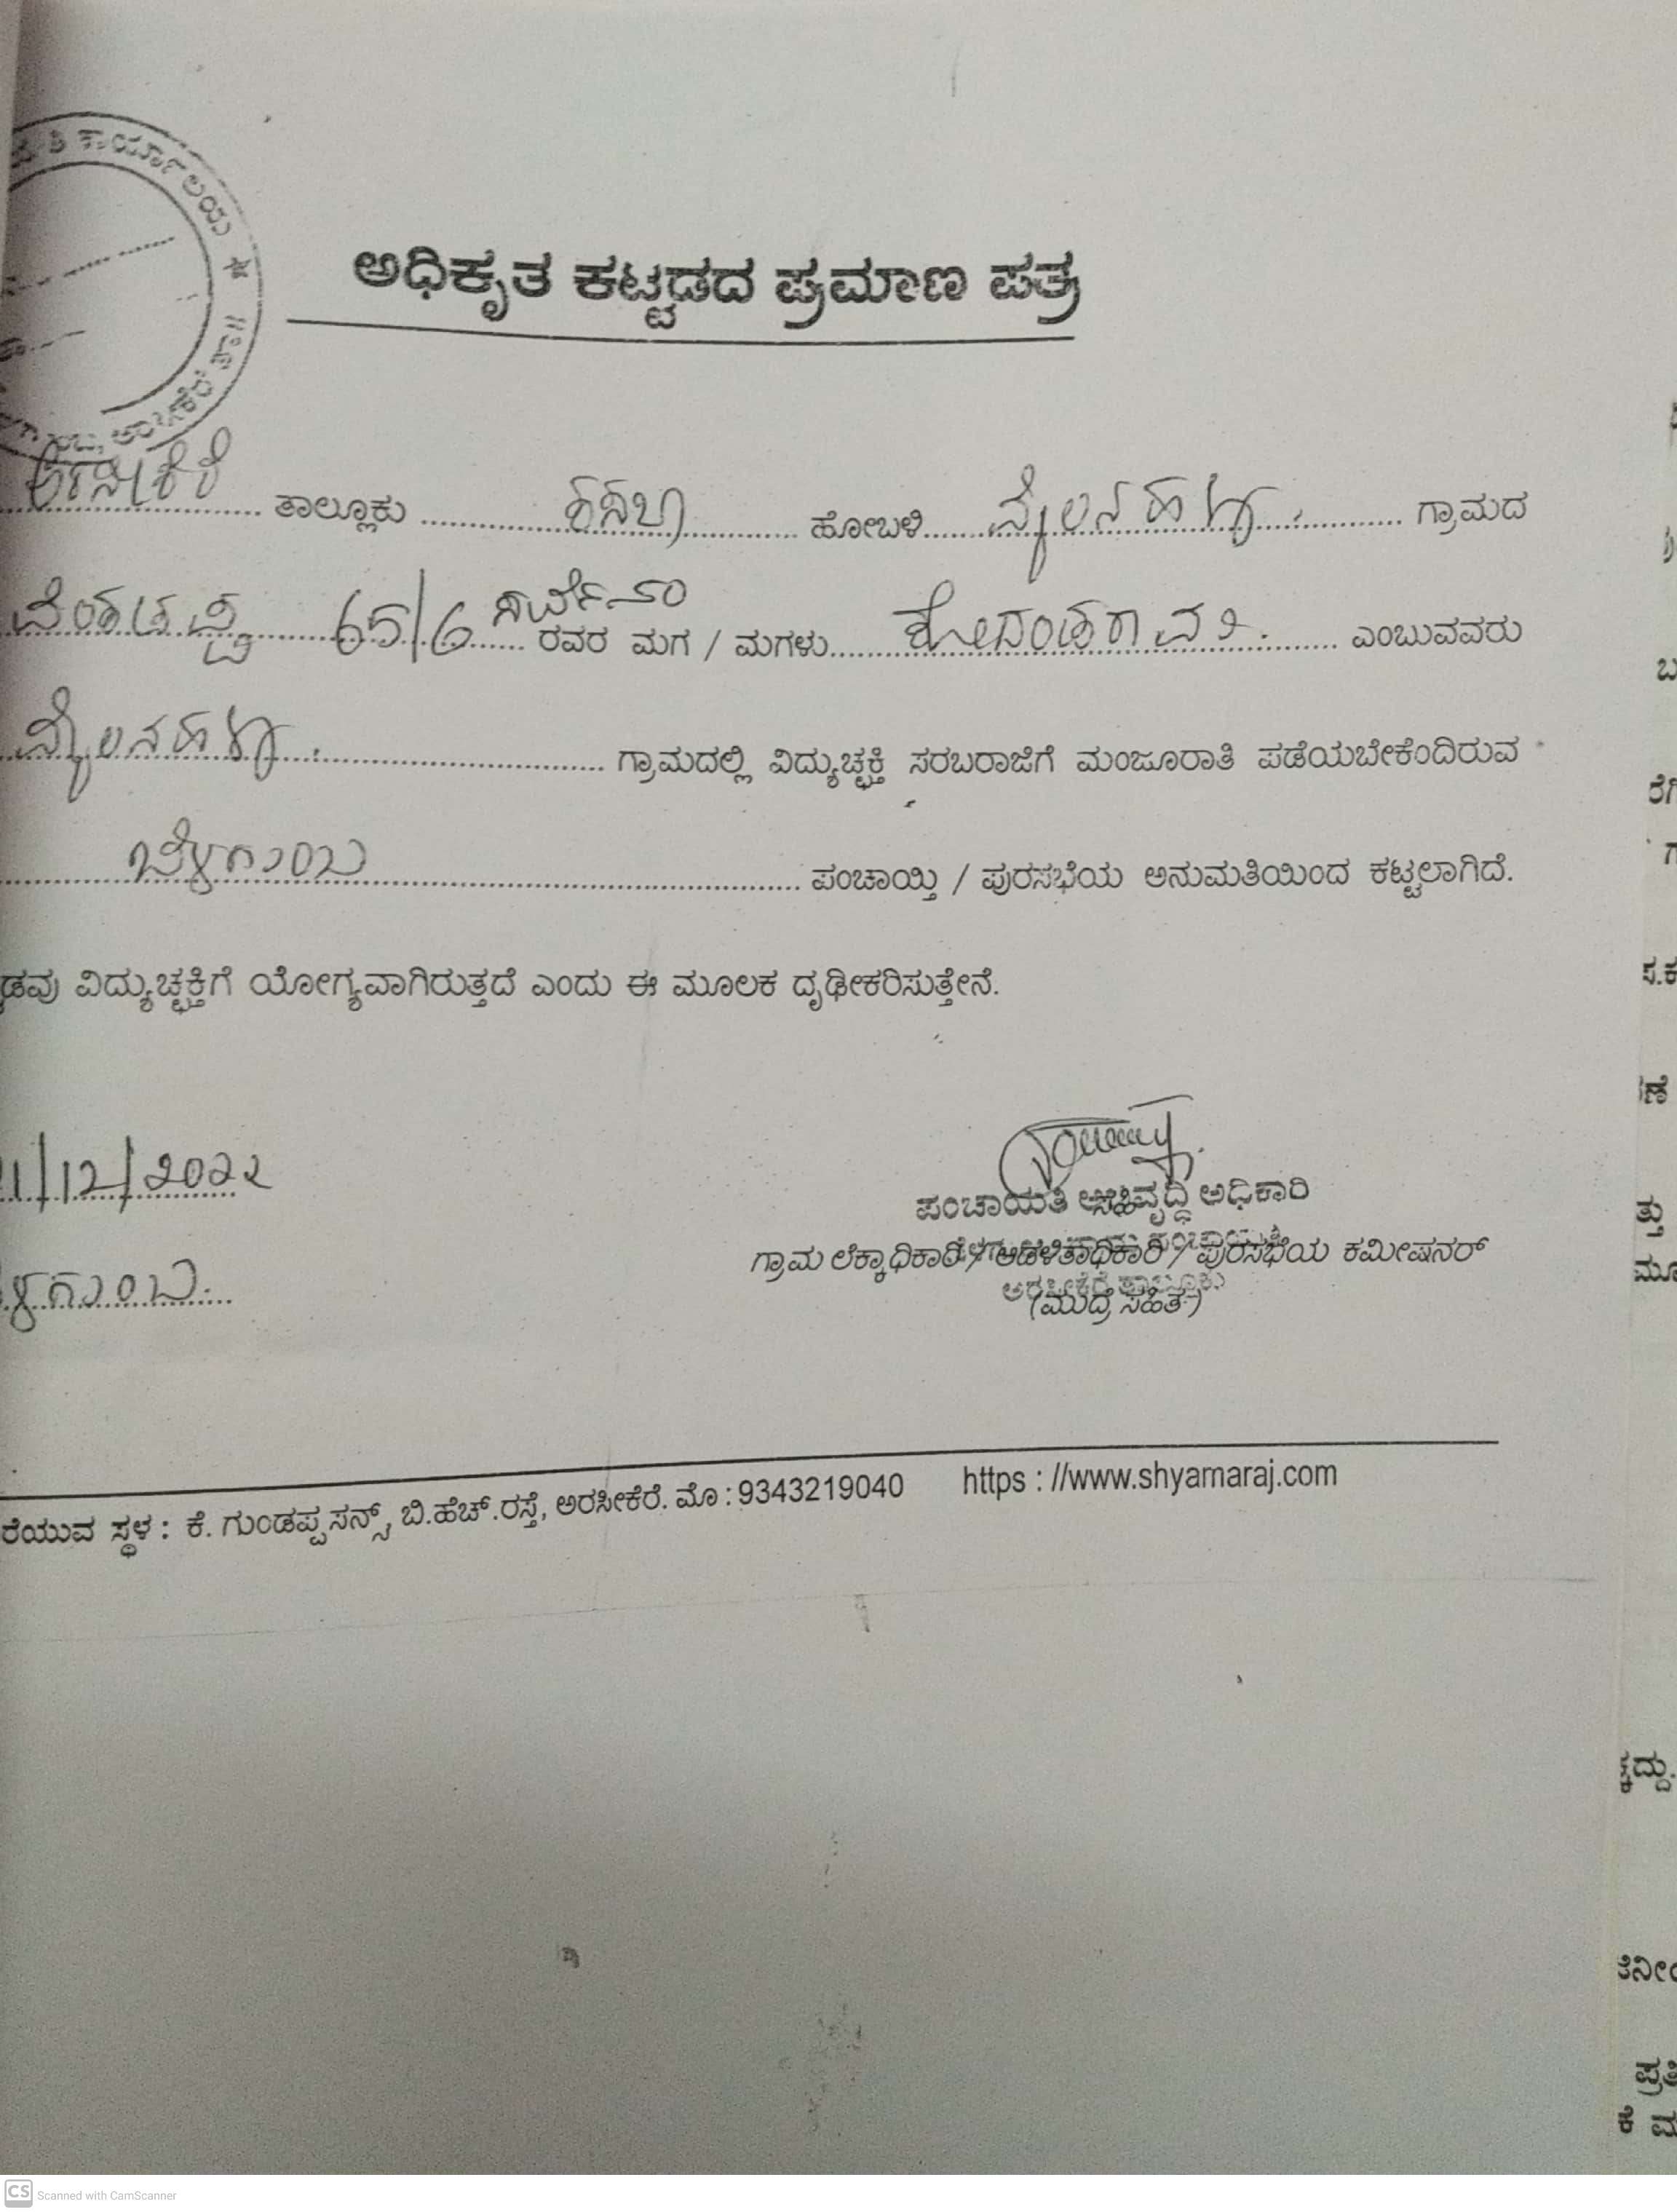 ಕಾರ್ಯಾಲಯ ★
ಅಧಿಕೃತ ಕಟ್ಟಡದ ಪ್ರಮಾಣ ಪತ್ರ
ಅರಸೀಕೆರೆ ತಾಲ್ಲೂಕು ಕಸಬಾ ಹೋಬಳಿ ಮೈಲನಹಳ್ಳಿ ಗ್ರಾಮದ
ವೆಂಕಟಪ್ಪ 65/6 ಸರ್ವೆ ನಂ ರವರ ಮಗ / ಮಗಳು ಕೋದಂಡರಾಮ ಎಂಬುವವರು
ಮೈಲನಹಳ್ಳಿ ಗ್ರಾಮದಲ್ಲಿ ವಿದ್ಯುಚ್ಛಕ್ತಿ ಸರಬರಾಜಿಗೆ ಮಂಜೂರಾತಿ ಪಡೆಯಬೇಕೆಂದಿರುವ
ಬೆಳಗುಂಬ ಪಂಚಾಯ್ತಿ / ಪುರಸಭೆಯ ಅನುಮತಿಯಿಂದ ಕಟ್ಟಲಾಗಿದೆ.
ಡವು ವಿದ್ಯುಚ್ಛಕ್ತಿಗೆ ಯೋಗ್ಯವಾಗಿರುತ್ತದೆ ಎಂದು ಈ ಮೂಲಕ ದೃಢೀಕರಿಸುತ್ತೇನೆ.
1/12/2022
ಪಂಚಾಯತಿ ಅಭಿವೃದ್ಧಿ ಅಧಿಕಾರಿ
ಗ್ರಾಮ ಲೆಕ್ಕಾಧಿಕಾರಿ / ಆಡಳಿತಾಧಿಕಾರಿ / ಪುರಸಭೆಯ ಕಮೀಷನರ್
ಅರಸೀಕೆರೆ ತಾಲ್ಲೂಕು
(ಮುದ್ರೆ ಸಹಿತ)
ಳಗುಂಬ
ರೆಯುವ ಸ್ಥಳ : ಕೆ. ಗುಂಡಪ್ಪ ಸನ್ಸ್, ಬಿ.ಹೆಚ್.ರಸ್ತೆ, ಅರಸೀಕೆರೆ. ಮೊ : 9343219040 https : //www.shyamaraj.com
CS Scanned with CamScanner